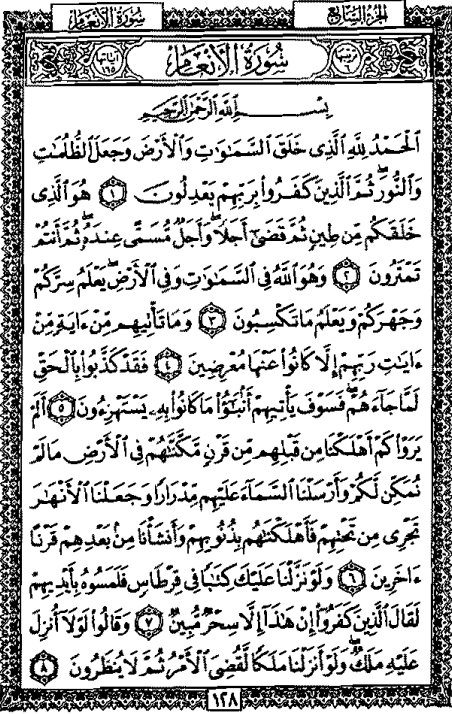 سُورَةُ الأَنْعَام الجُزْءُ السَّابِعُ
آياتها ١٦٥ سُورَةُ الأَنْعَام ترتيبها ٦
بِسْمِ ٱللَّهِ ٱلرَّحْمَٰنِ ٱلرَّحِيمِ
ٱلْحَمْدُ لِلَّهِ ٱلَّذِى خَلَقَ ٱلسَّمَٰوَٰتِ وَٱلْأَرْضَ وَجَعَلَ ٱلظُّلُمَٰتِ
وَٱلنُّورَ ۖ ثُمَّ ٱلَّذِينَ كَفَرُوا۟ بِرَبِّهِمْ يَعْدِلُونَ ١ هُوَ ٱلَّذِى
خَلَقَكُم مِّن طِينٍ ثُمَّ قَضَىٰٓ أَجَلًا ۖ وَأَجَلٌ مُّسَمًّى عِندَهُۥ ۖ ثُمَّ أَنتُمْ
تَمْتَرُونَ ٢ وَهُوَ ٱللَّهُ فِى ٱلسَّمَٰوَٰتِ وَفِى ٱلْأَرْضِ ۖ يَعْلَمُ سِرَّكُمْ
وَجَهْرَكُمْ وَيَعْلَمُ مَا تَكْسِبُونَ ٣ وَمَا تَأْتِيهِم مِّنْ ءَايَةٍ مِّنْ
ءَايَٰتِ رَبِّهِمْ إِلَّا كَانُوا۟ عَنْهَا مُعْرِضِينَ ٤ فَقَدْ كَذَّبُوا۟ بِٱلْحَقِّ
لَمَّا جَآءَهُمْ ۖ فَسَوْفَ يَأْتِيهِمْ أَنۢبَٰٓؤُا۟ مَا كَانُوا۟ بِهِۦ يَسْتَهْزِءُونَ ٥ أَلَمْ
يَرَوْا۟ كَمْ أَهْلَكْنَا مِن قَبْلِهِم مِّن قَرْنٍ مَّكَّنَّٰهُمْ فِى ٱلْأَرْضِ مَا لَمْ
نُمَكِّن لَّكُمْ وَأَرْسَلْنَا ٱلسَّمَآءَ عَلَيْهِم مِّدْرَارًا وَجَعَلْنَا ٱلْأَنْهَٰرَ
تَجْرِى مِن تَحْتِهِمْ فَأَهْلَكْنَٰهُم بِذُنُوبِهِمْ وَأَنشَأْنَا مِنۢ بَعْدِهِمْ قَرْنًا
ءَاخَرِينَ ٦ وَلَوْ نَزَّلْنَا عَلَيْكَ كِتَٰبًا فِى قِرْطَاسٍ فَلَمَسُوهُ بِأَيْدِيهِمْ
لَقَالَ ٱلَّذِينَ كَفَرُوٓا۟ إِنْ هَٰذَآ إِلَّا سِحْرٌ مُّبِينٌ ٧ وَقَالُوا۟ لَوْلَآ أُنزِلَ
عَلَيْهِ مَلَكٌ ۖ وَلَوْ أَنزَلْنَا مَلَكًا لَّقُضِىَ ٱلْأَمْرُ ثُمَّ لَا يُنظَرُونَ ٨
١٢٨